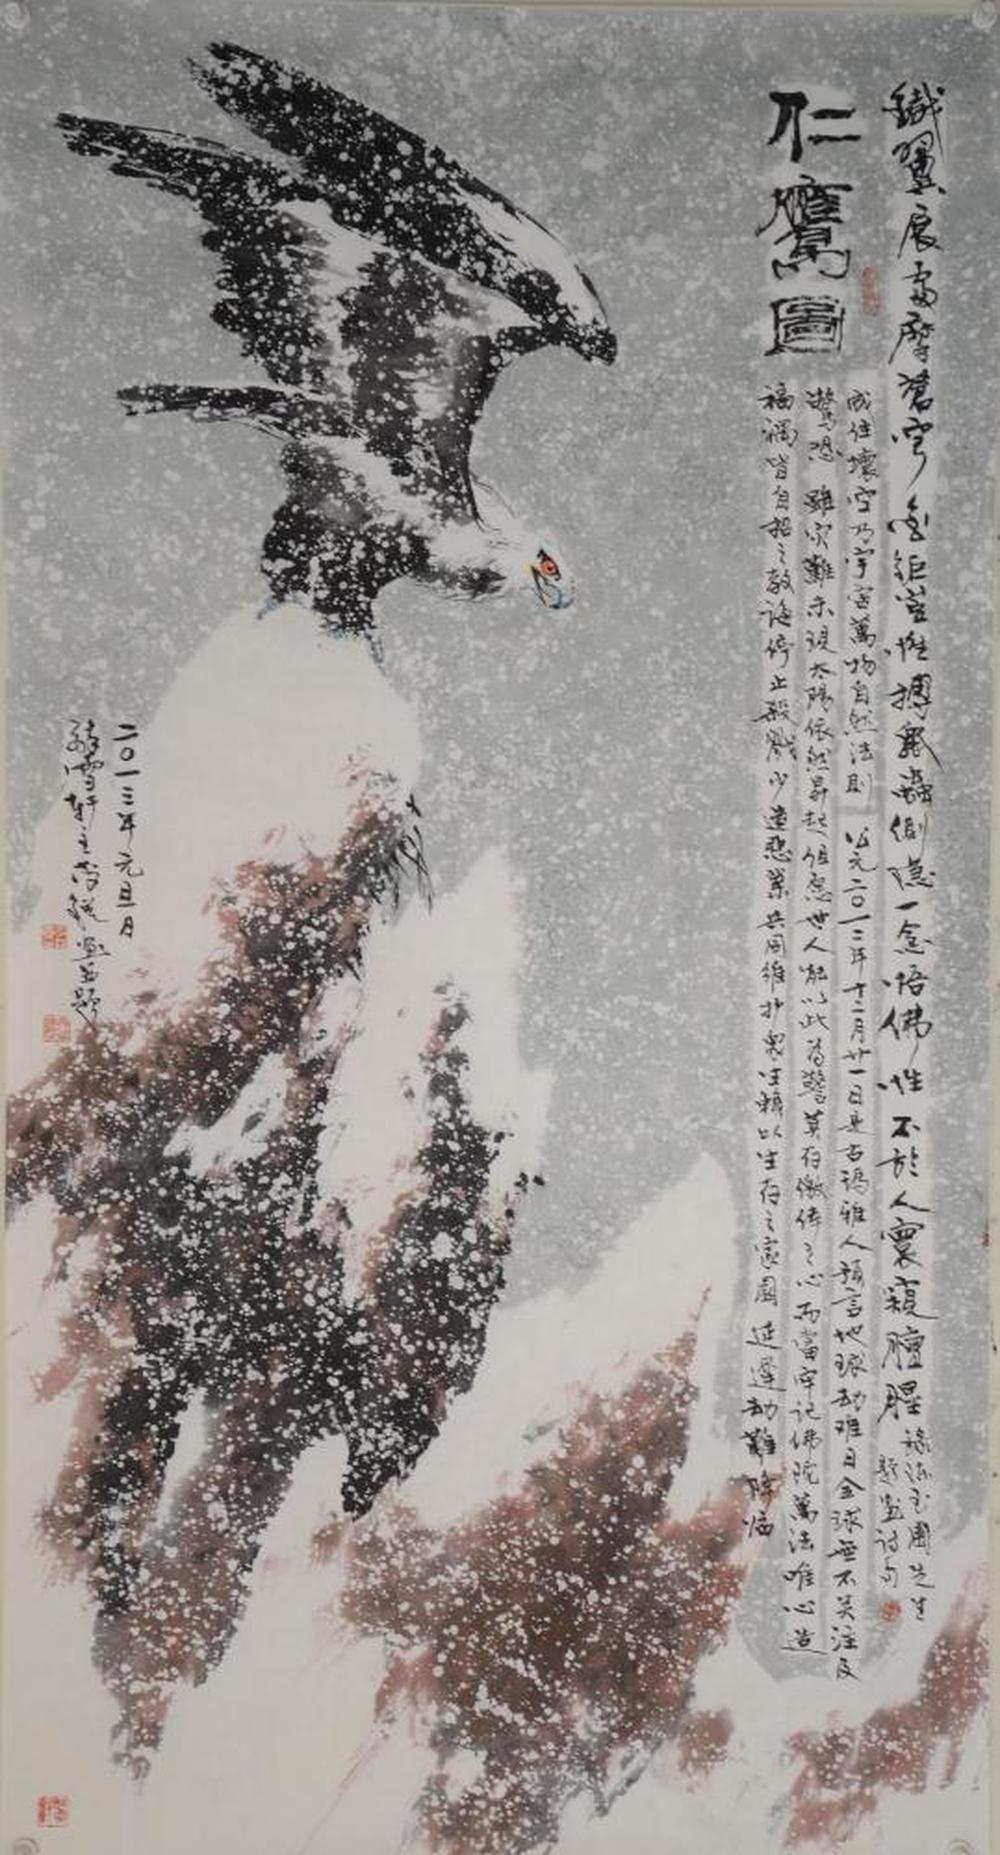 鐵翼展處摩蒼穹金鉅豈惟搏毳蟲惻隱一念悟佛性不於人寰窺膻腥
題畫詩句
仁鷹圖
成住壞空乃宇宙萬物自然法則 公元二〇一二年十二月廿一日是古瑪雅人預言地球劫难日全球無不关注及
驚恐 雖灾難未現太陽依然昇起但愿世人能以此为警莫存徼倖之心而當牢记佛陀萬法唯心造
福禍皆自招之教誨停止殺戮少造惡業共同維护衆生賴以生存之家園 延遲劫難降临
二〇一三年元旦月
雪軒主 畫并題